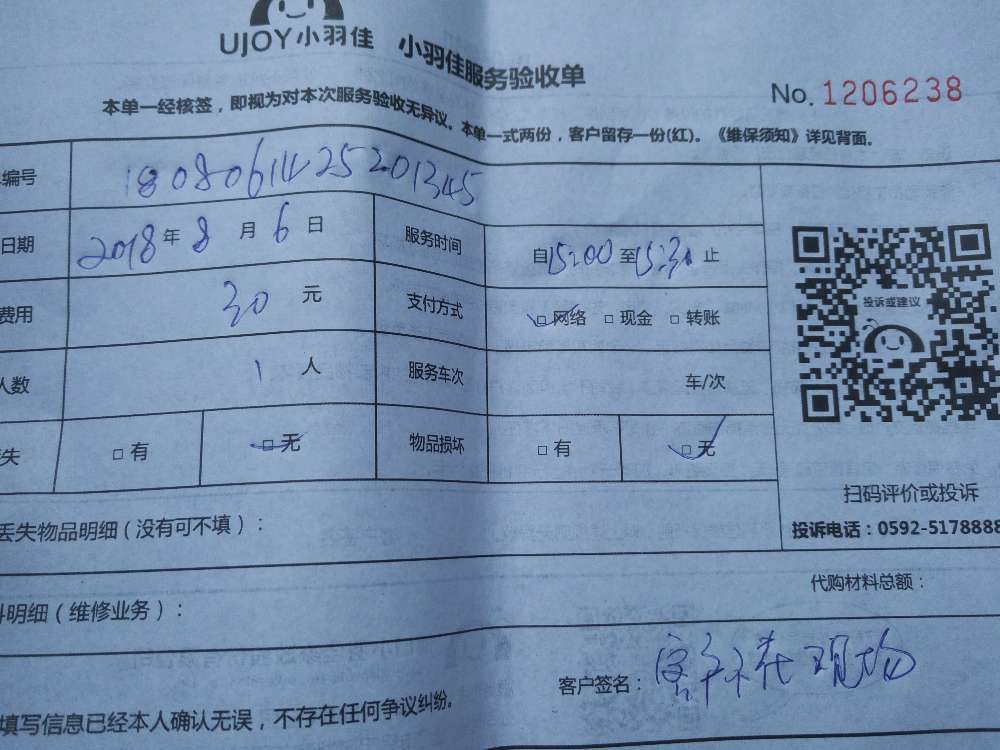 UJOY小羽佳 小羽佳服务验收单
No. 1206238
本单一经核签，即视为对本次服务验收无异议。本单一式两份，客户留存一份(红)。《维保须知》详见背面。
编号 1808061425201345
日期 2018年 8 月 6 日 服务时间 自15:00至15:30止
费用 30 元 支付方式 □网络 □现金 □转账
人数 1 人 服务车次 车/次
失 □有 □无 物品损坏 □有 □无
投诉或建议
扫码评价或投诉
投诉电话：0592-5178888
丢失物品明细（没有可不填）：
料明细（维修业务）：
代购材料总额：
填写信息已经本人确认无误，不存在任何争议纠纷。
客户签名：客户不在现场